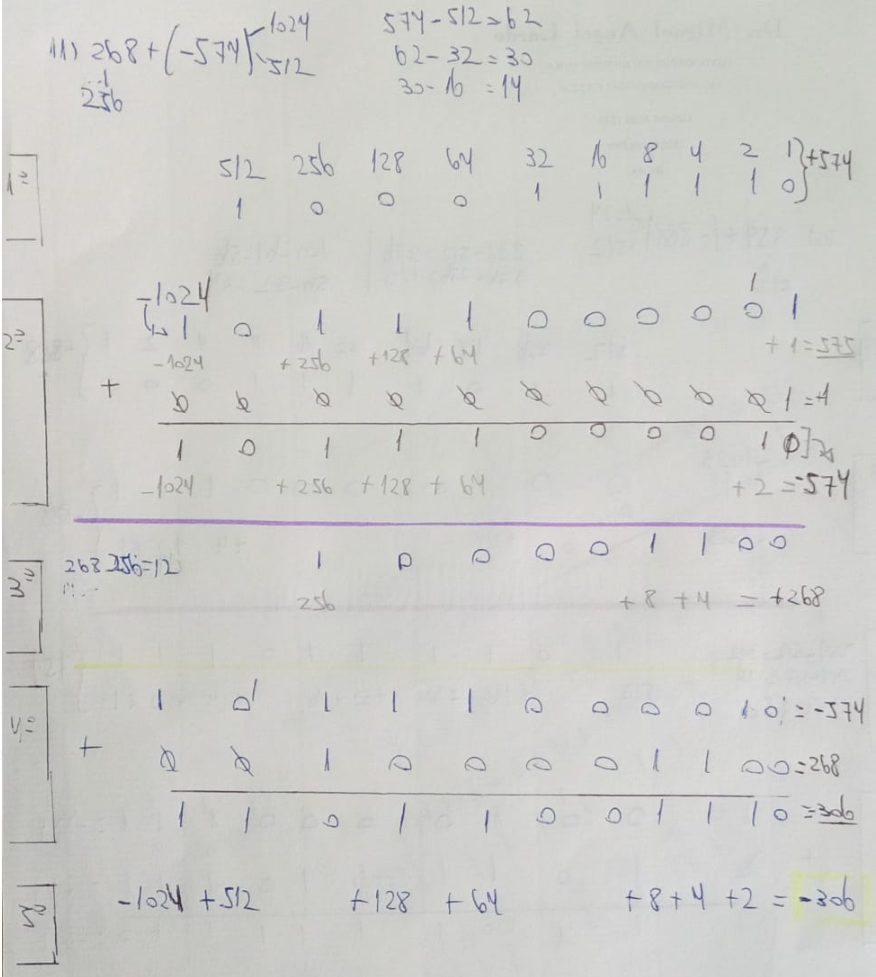 11) 268 + (-574) 1024 574 - 512 = 62
512 62 - 32 = 30
256 30 - 16 = 14
1º
512 256 128 64 32 16 8 4 2 1 } +574
1 0 0 0 1 1 1 1 1 0
2º
-1024 1
1 0 1 1 1 0 0 0 0 0 1
-1024 +256 +128 +64 +1 = 575
+ 0 0 0 0 0 0 0 0 0 0 1 = 1
1 0 1 1 1 0 0 0 0 1 0
-1024 +256 +128 + 64 +2 = -574
3º
268 256 = 12 1 0 0 0 0 1 1 0 0
256 +8 +4 = +268
1
1 0 1 1 1 0 0 0 0 1 0 = -574
+ 0 0 1 0 0 0 0 1 1 0 0 = 268
1 1 0 1 1 0 0 1 1 1 0 = 306
5º
-1024 + 512 +128 + 64 +8 + 4 + 2 = -306